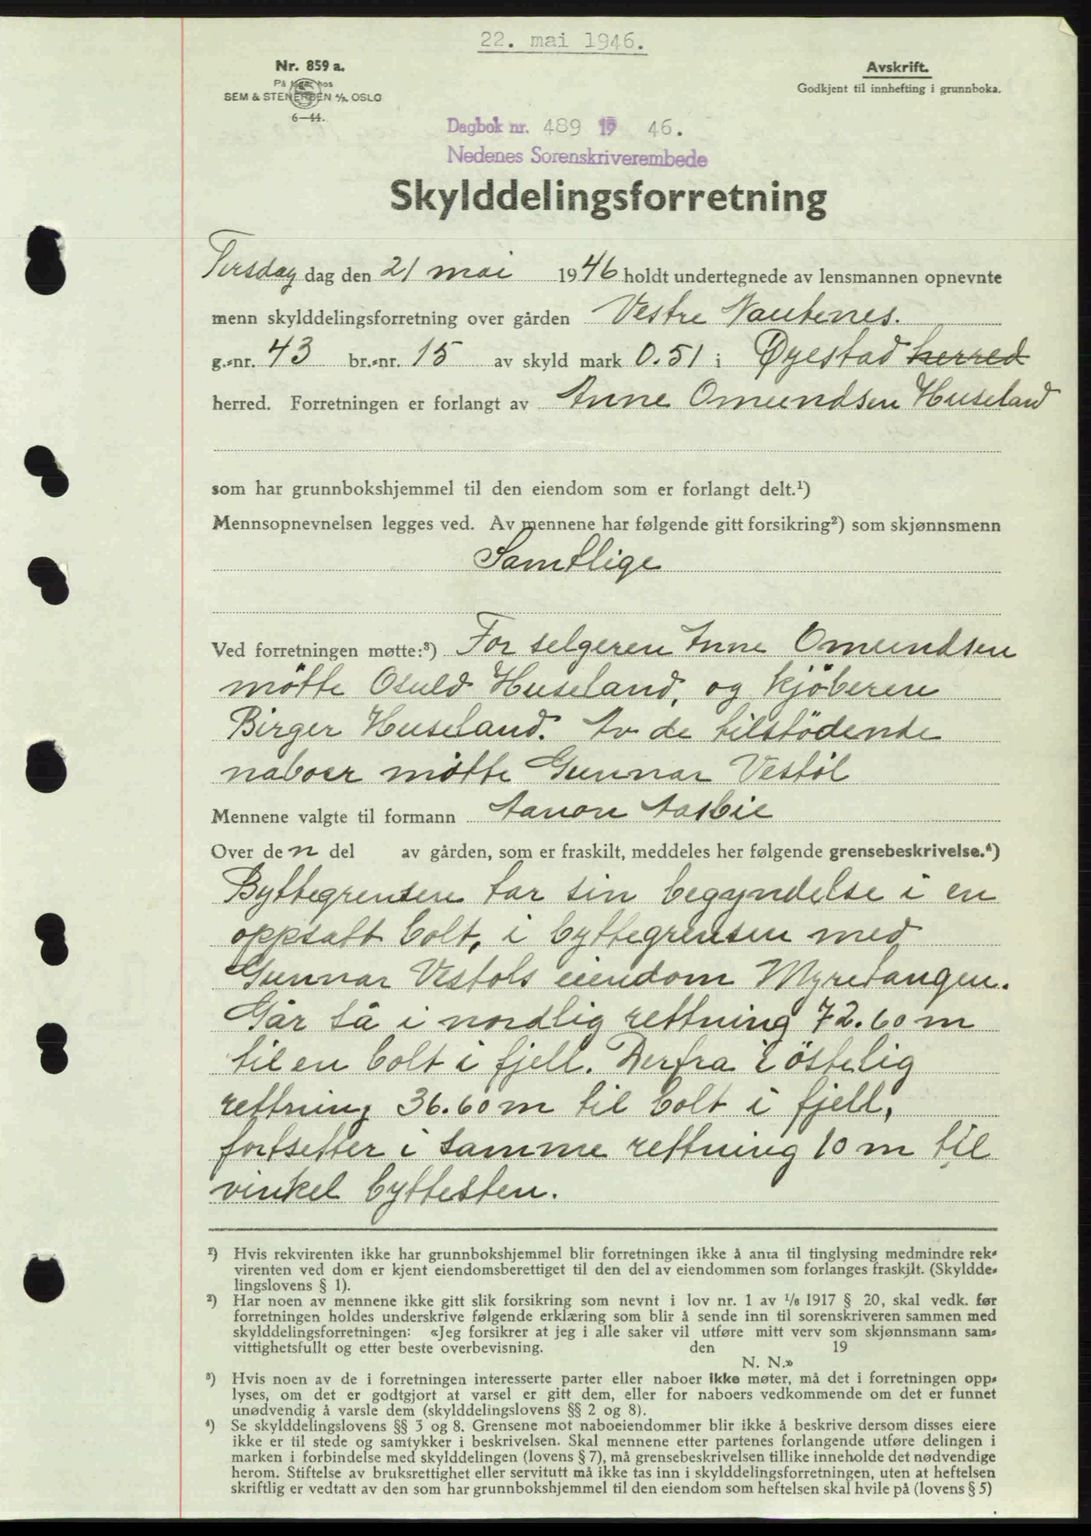 22. mai 1946.
Nr. 859 a.
På lager hos
SEM & STENERSEN A/S, OSLO
6—44.
Avskrift.
Godkjent til innhefting i grunnboka.
Dagbok nr. 489 19 46.
Nedenes Sorenskriverembede
Skylddelingsforretning
Tirsdag dag den 21 mai 1946 holdt undertegnede av lensmannen opnevnte
menn skylddelingsforretning over gården Vestre Nautenes.
g.-nr. 43 br.-nr. 15 av skyld mark 0.51 i Øyestad herred
herred. Forretningen er forlangt av Anne Omundsen Huseland
som har grunnbokshjemmel til den eiendom som er forlangt delt.¹)
Mennsopnevnelsen legges ved. Av mennene har følgende gitt forsikring²) som skjønnsmenn
Samtlige
Ved forretningen møtte:³) For selgeren Anne Omundsen
møtte Osuld Huseland, og kjöberen
Birger Huseland. Av de tilstödende
naboer møtte Gunnar Vestøl
Mennene valgte til formann Aanon Aasbie
Over den del av gården, som er fraskilt, meddeles her følgende grensebeskrivelse.⁴)
Byttegrensen tar sin begyndelse i en
oppsatt bolt, i byttegrensen med
Gunnar Vestøls eiendom Myretangen.
Går så i nordlig rettning 72.60 m
til en bolt i fjell. Derfra i östelig
rettning 36.60 m til bolt i fjell,
fortsetter i samme rettning 10 m til
vinkel byttesten.
¹) Hvis rekvirenten ikke har grunnbokshjemmel blir forretningen ikke å anta til tinglysing medmindre rek-
virenten ved dom er kjent eiendomsberettiget til den del av eiendommen som forlanges fraskilt. (Skyldde-
lingslovens § 1).
²) Har noen av mennene ikke gitt slik forsikring som nevnt i lov nr. 1 av 1/8 1917 § 20, skal vedk. før
forretningen holdes underskrive følgende erklæring som blir å sende inn til sorenskriveren sammen med
skylddelingsforretningen: «Jeg forsikrer at jeg i alle saker vil utføre mitt verv som skjønnsmann sam-
vittighetsfullt og etter beste overbevisning. den 19
N. N.»
³) Hvis noen av de i forretningen interesserte parter eller naboer ikke møter, må det i forretningen opp-
lyses, om det er godtgjort at varsel er gitt dem, eller for naboers vedkommende om det er funnet
unødvendig å varsle dem (skylddelingslovens §§ 2 og 8).
⁴) Se skylddelingslovens §§ 3 og 8. Grensene mot naboeiendommer blir ikke å beskrive dersom disses eiere
ikke er til stede og samtykker i beskrivelsen. Skal mennene etter partenes forlangende utføre delingen i
marken i forbindelse med skylddelingen (lovens § 7), må grensebeskrivelsen tillike inneholde det nødvendige
herom. Stiftelse av bruksrettighet eller servitutt må ikke tas inn i skylddelingsforretningen, uten at heftelsen
skriftlig er vedtatt av den som har grunnbokshjemmel til den eiendom som heftelsen skal hvile på (lovens § 5)